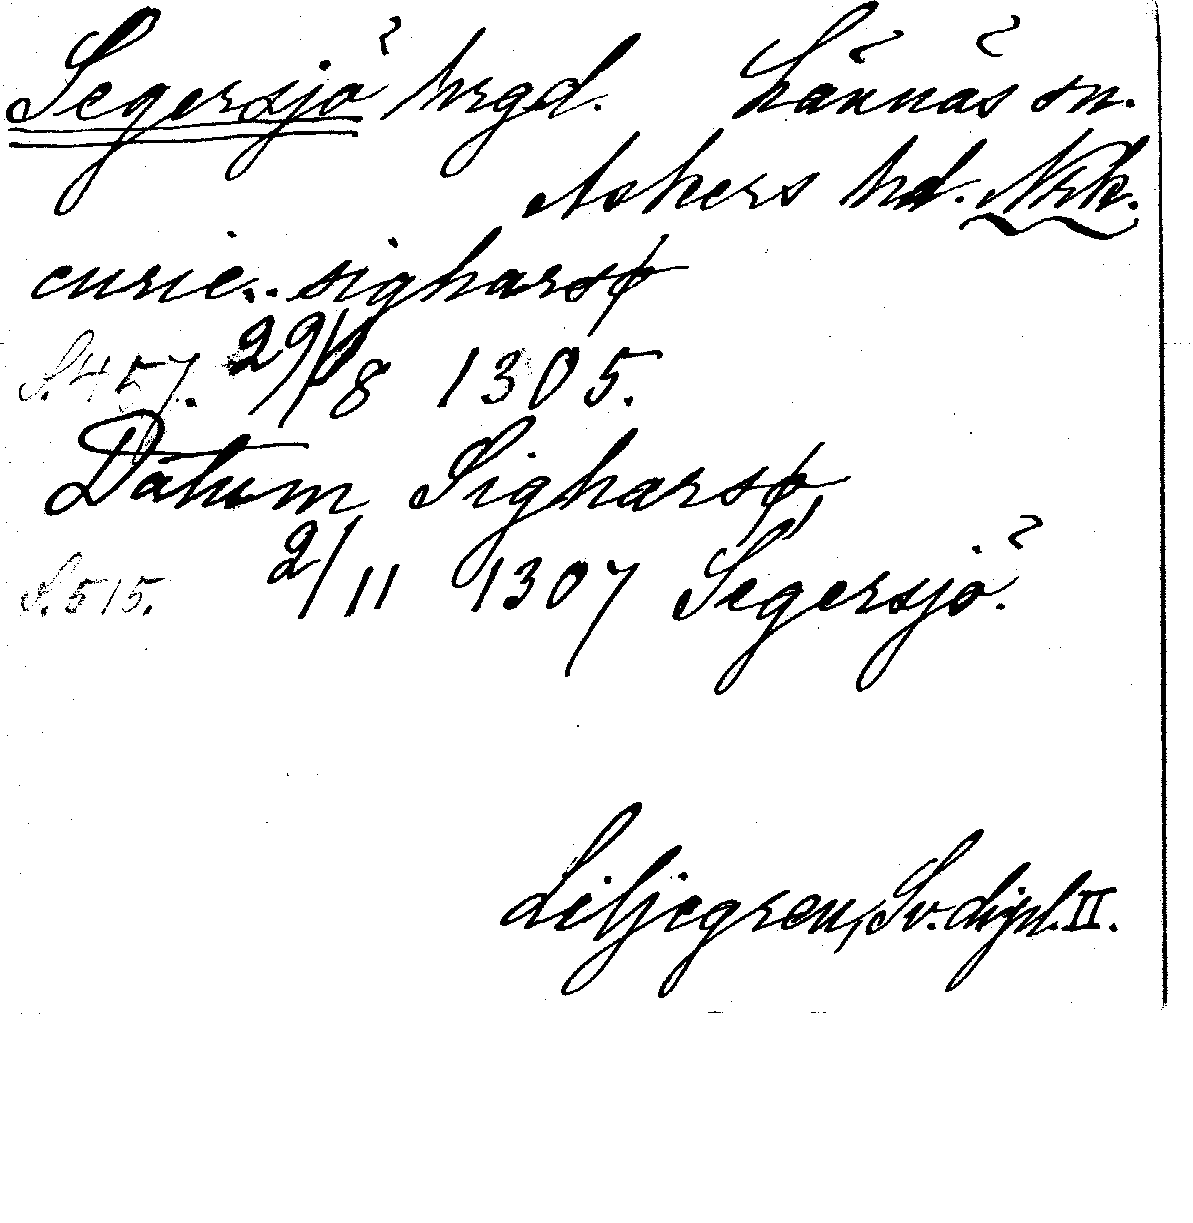 Segersjö hrgd. Lännäs sn.
Askers hd. Nrk.
curie.. sigharsø
S. 457. 29/8 1305.
Datum Sigharsø,
S. 515. 2/11 1307 Segersjö.
Liljegren, Sv. dipl. II.